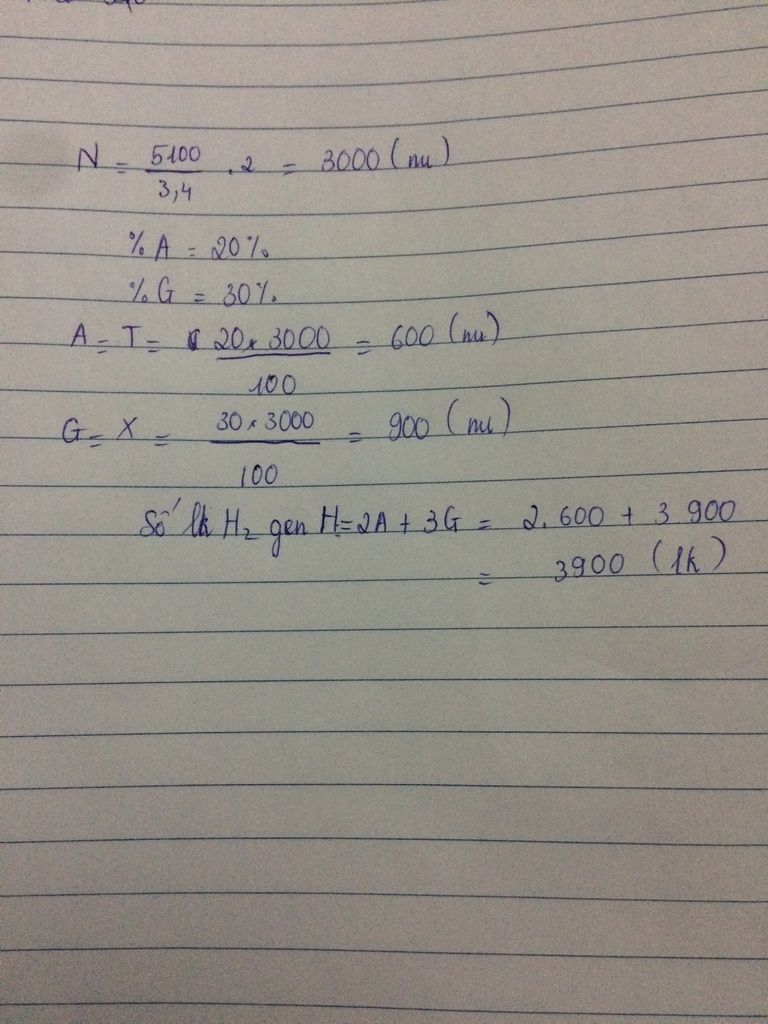 N = 5100/3,4 . 2 = 3000 (nu)
% A = 20%
% G = 30%
A = T = 20 x 3000 / 100 = 600 (nu)
G = X = 30 x 3000 / 100 = 900 (nu)
Số lk H2 gen H = 2A + 3G = 2.600 + 3 900
= 3900 (lk)